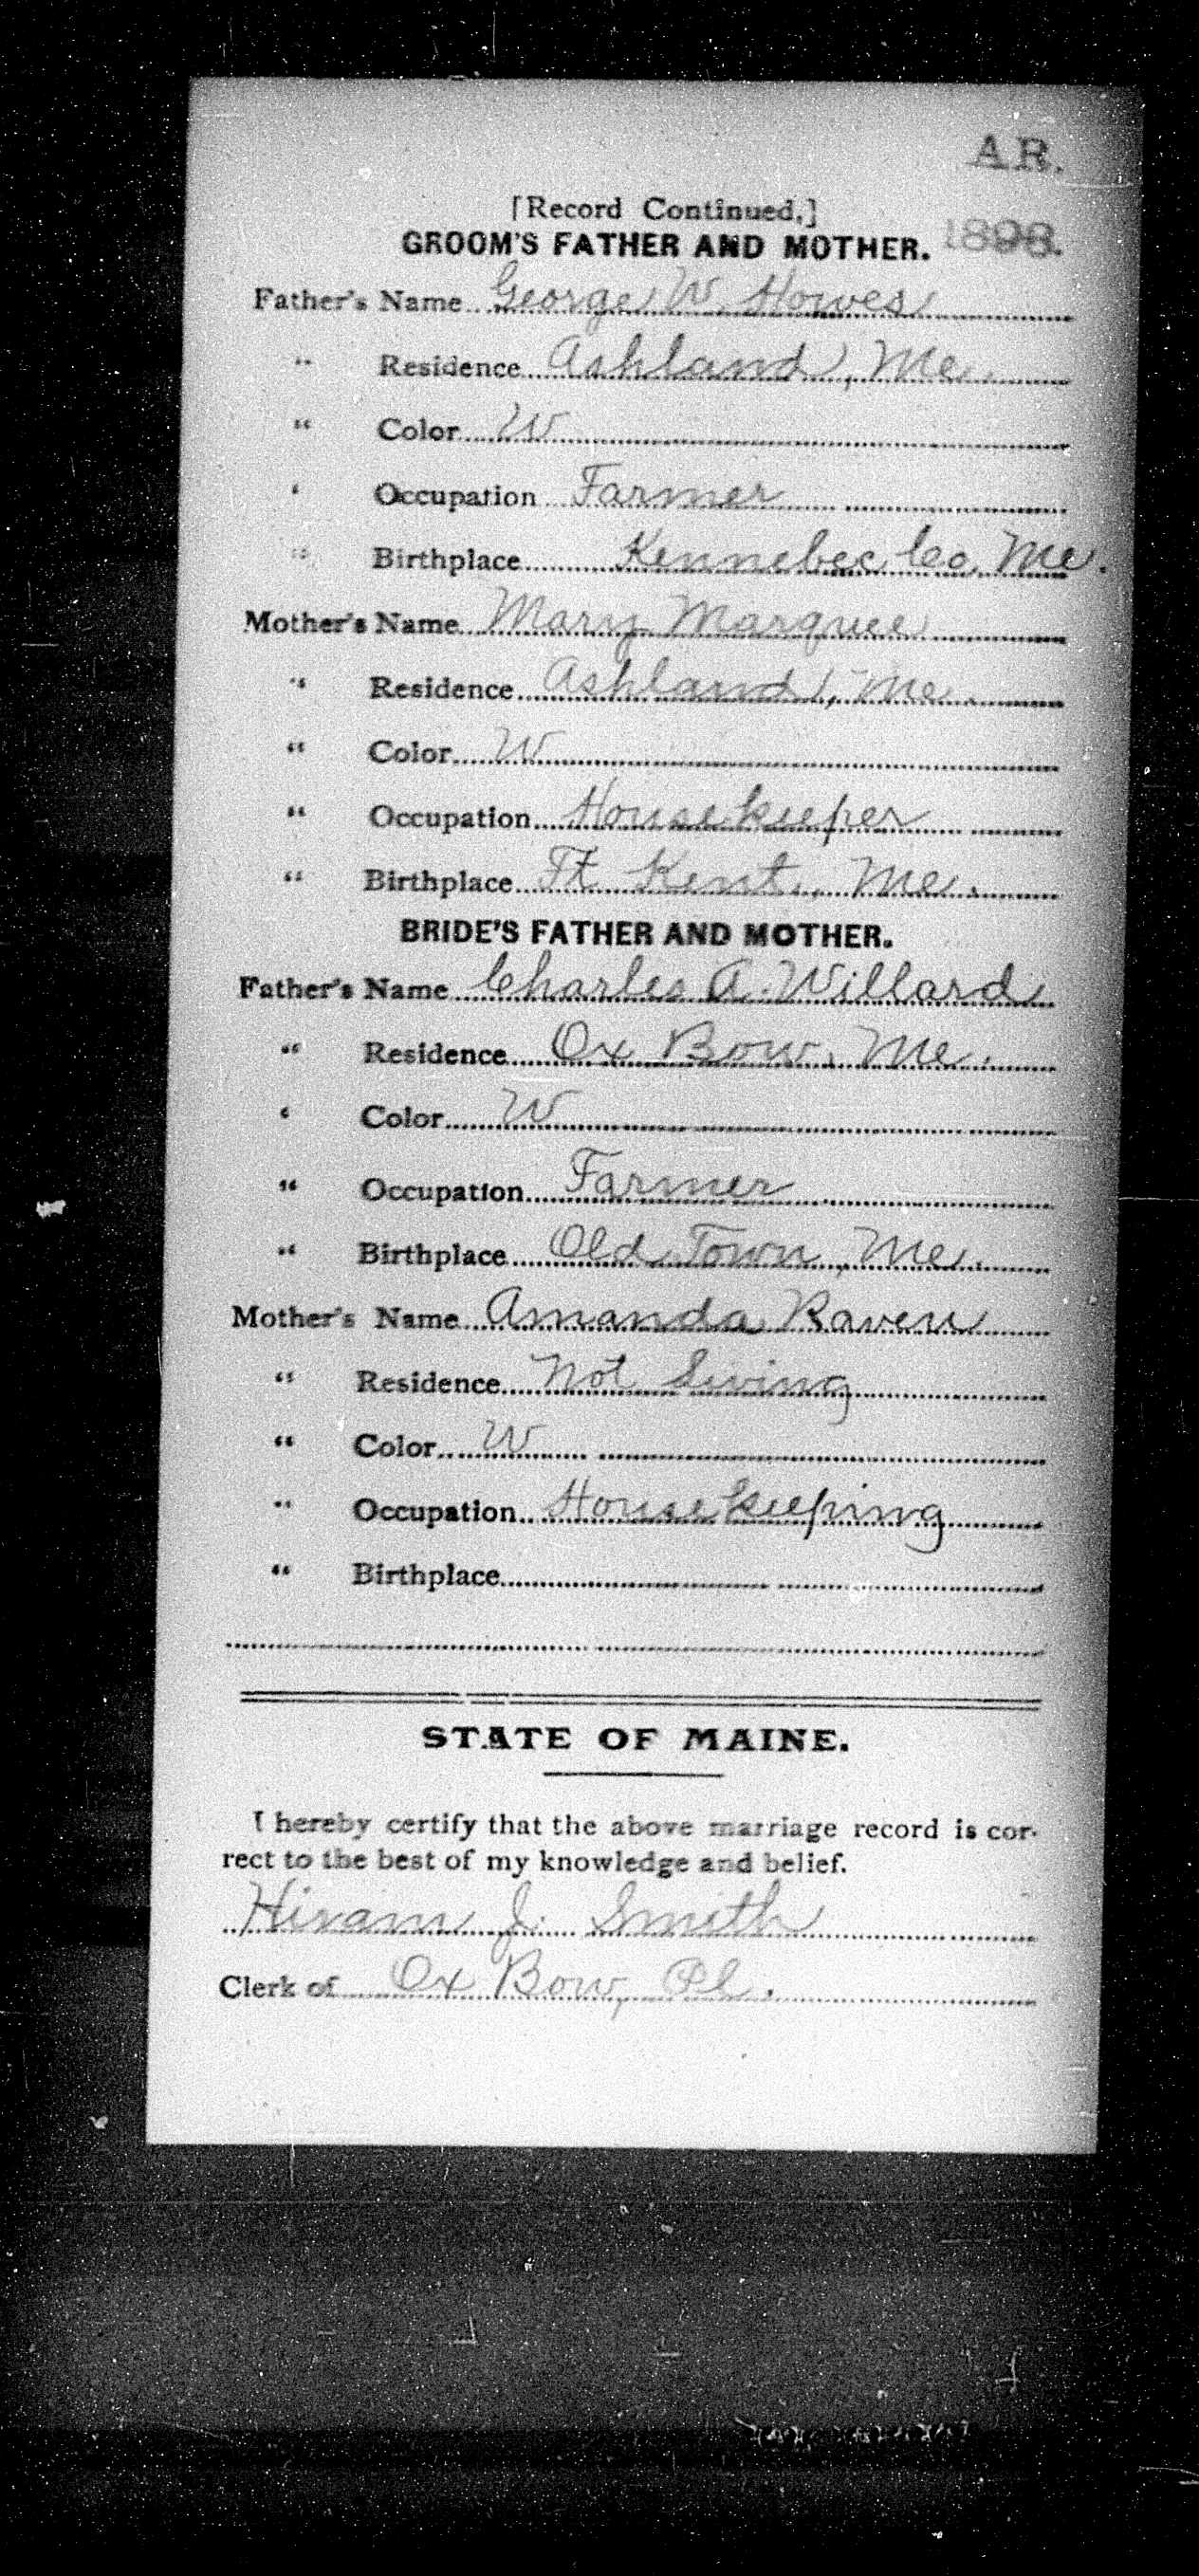 AR.
[Record Continued.]
1898.
GROOM'S FATHER AND MOTHER.
Father's Name George W. Howes
" Residence Ashland, Me.
" Color W
" Occupation Farmer
" Birthplace Kennebec Co. Me.
Mother's Name Mary Marquee
" Residence Ashland, Me.
" Color W
" Occupation Housekeeper
" Birthplace Ft. Kent, Me.
BRIDE'S FATHER AND MOTHER.
Father's Name Charles A. Willard
" Residence Ox Bow, Me.
" Color W
" Occupation Farmer
" Birthplace Old Town, Me.
Mother's Name Amanda Raven
" Residence Not Living
" Color W
" Occupation Housekeeping
" Birthplace
STATE OF MAINE.
I hereby certify that the above marriage record is cor-
rect to the best of my knowledge and belief.
Hiram J. Smith
Clerk of Ox Bow, Pl.